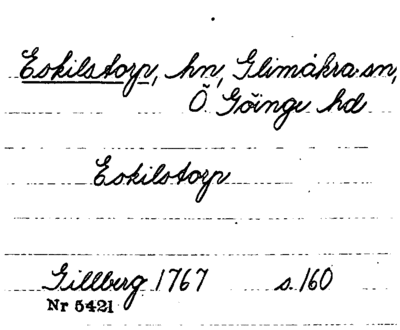 Eskilstorp, hn, Glimåkra sn,
Ö Göinge hd
Eskilstorp
Gillberg 1767 s. 160
Nr 5421